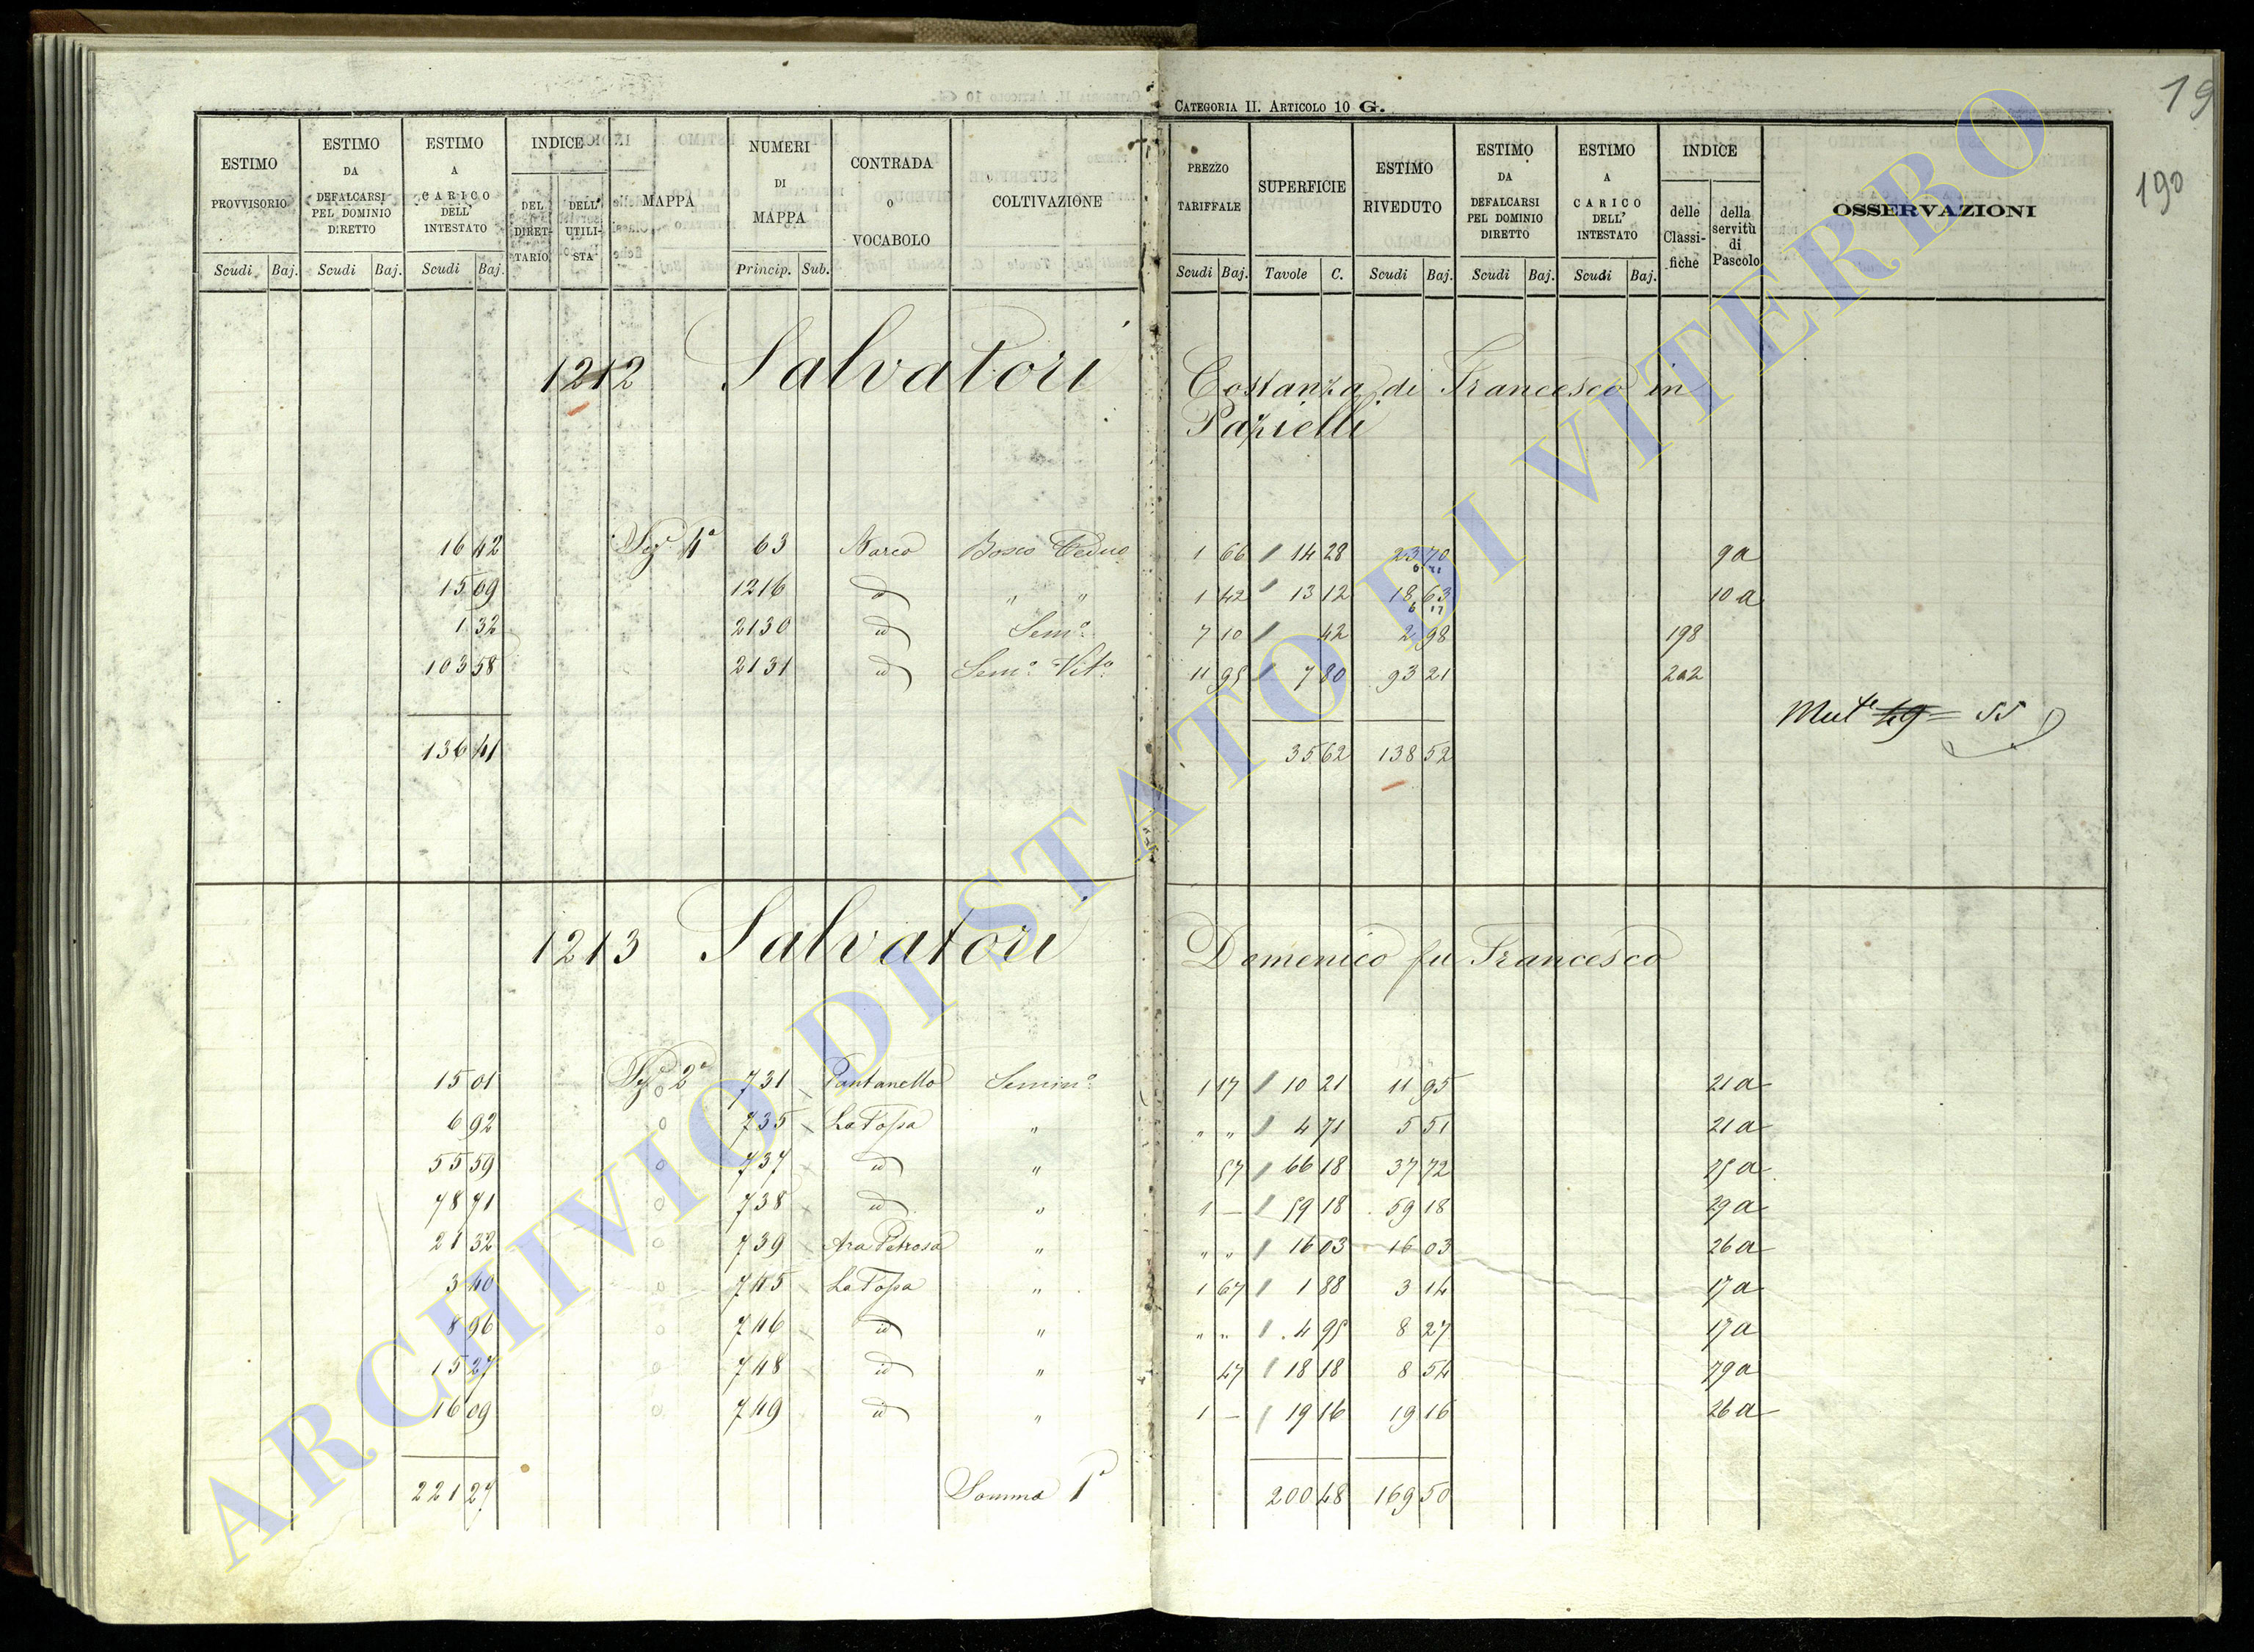 CATEGORIA II. ARTICOLO 10 G.
19
190
ESTIMO PROVVISORIO Scudi Baj.
ESTIMO DA DEFALCARSI PEL DOMINIO DIRETTO Scudi Baj.
ESTIMO A CARICO DELL' INTESTATO Scudi Baj.
INDICE DEL DIRET-TARIO DELL' UTILI-STA
MAPPA
NUMERI DI MAPPA Princip. Sub.
CONTRADA O VOCABOLO
COLTIVAZIONE
PREZZO TARIFFALE Scudi Baj.
SUPERFICIE Tavole C.
ESTIMO RIVEDUTO Scudi Baj.
ESTIMO DA DEFALCARSI PEL DOMINIO DIRETTO Scudi Baj.
ESTIMO A CARICO DELL' INTESTATO Scudi Baj.
INDICE delle Classi-fiche della servitù di Pascolo
OSSERVAZIONI
1212 Salvatori Costanza di Francesco in
Pazielli
16 42 Sez.e 4a 63 Narco Bosco Ceduo 1 66 14 28 23 70 9a
15 09 1216 id " " 1 42 13 12 18 63 10a
1 32 2130 id Sem.o 7 10 42 2 98 198
103 58 2131 id Sem.o Vit.o 11 95 7 80 93 21 202
Mut.e 49 = 55
136 41 35 62 138 52
1213 Salvatori Domenico fu Francesco
15 01 Sez.e 2a 731 Pantanello Semin.o 1 17 10 21 11 95 21a
6 92 735 La Fossa " " " 4 71 5 51 21a
55 59 737 id " 57 66 18 37 72 75a
78 71 738 id " 1 — 59 18 59 18 29a
21 32 739 Ara Petrosa " " " 16 03 16 03 26a
3 40 745 La Fossa " 1 67 1 88 3 14 17a
8 96 746 id " " " 4 95 8 27 17a
15 27 748 id " 47 18 18 8 54 79a
16 09 749 id " 1 — 19 16 19 16 26a
221 27 Somma 1a 200 48 169 50
ARCHIVIO DI STATO DI VITERBO